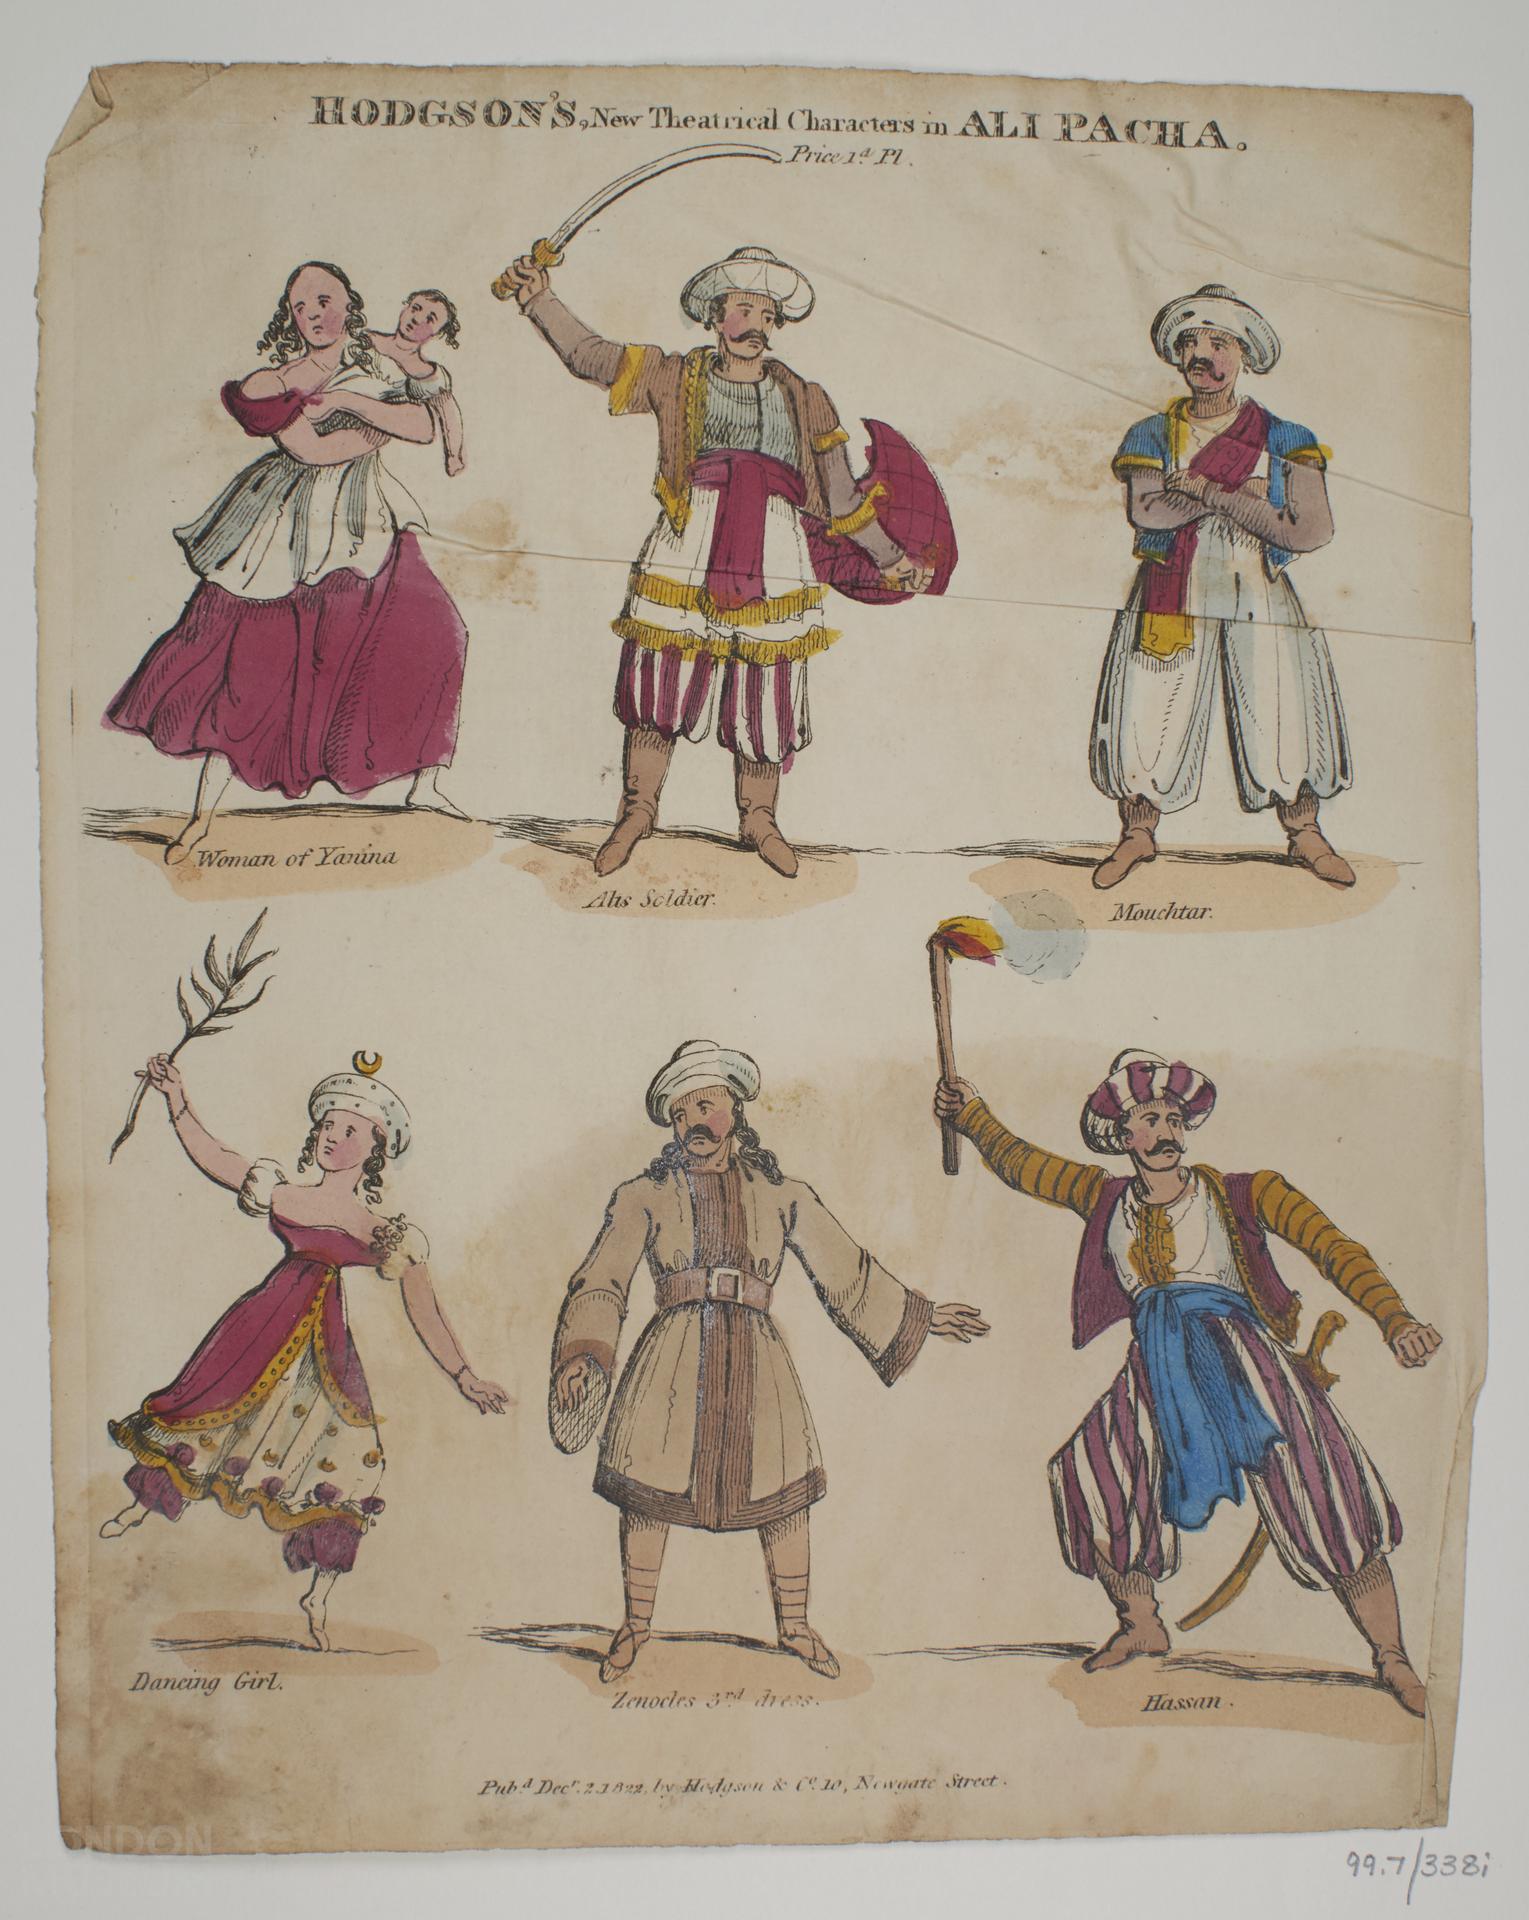 HODGSON'S, New Theatrical Characters in ALI PACHA.
Price 1d Pl.
Woman of Yanina
Alis Soldier.
Mouchtar.
Dancing Girl.
Zenocles 3rd dress.
Hassan.
Pubd Decr. 2 1822, by Hodgson & Co. 10, Newgate Street.
LONDON
99.7/338i